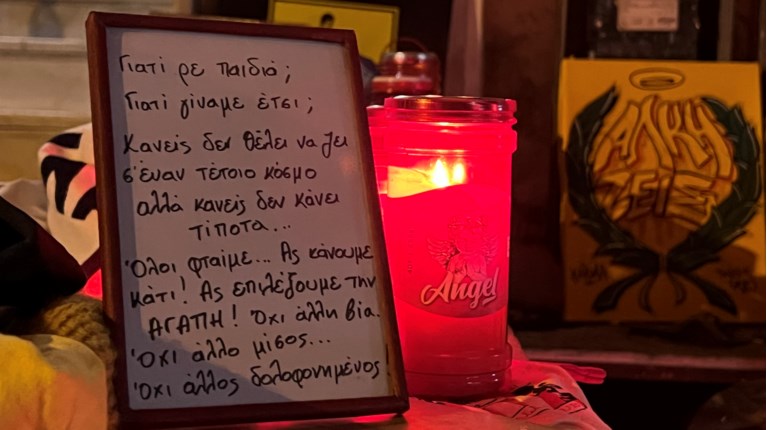 Γιατί ρε παιδιά;
Γιατί γίναμε έτσι;
Κανείς δεν θέλει να ζει
σ'έναν τέτοιο κόσμο
αλλά κανείς δεν κάνει
τίποτα...
Όλοι φταίμε... Ας κάνουμε
κάτι! Ας επιλέξουμε την
ΑΓΑΠΗ! Όχι άλλη βία.
Όχι άλλο μίσος...
Όχι άλλος δολοφονημένος!
Angel
ΑΛΚΗ
ΖΕΙΣ